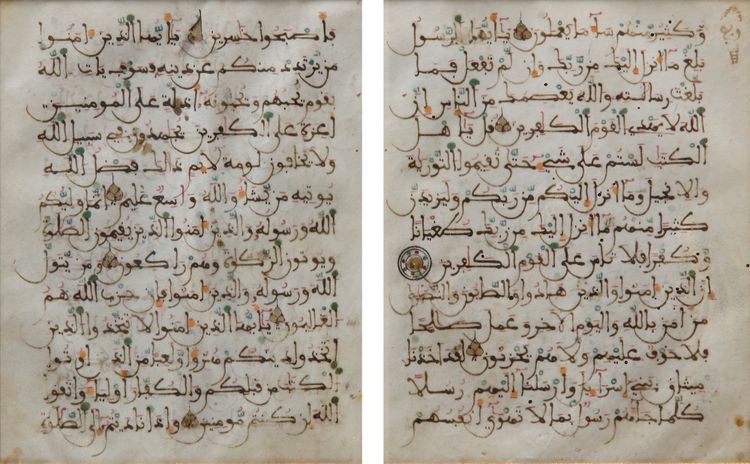 فاصبحوا خسرين يايها الذين امنوا
من يرتدد منكم عن دينه فسوف يات الله
بقوم يحبهم ويحبونه اذلة على المومنين
اعزة على الكفرين يجهدون في سبيل الله
ولا يخافون لومة لايم ذلك فضل الله
يوتيه من يشا والله وسع عليم انما وليكم
الله ورسوله والذين امنوا الذين يقيمون الصلوة
ويوتون الزكوة وهم ركعون ومن يتول
الله ورسوله والذين امنوا فان حزب الله هم
الغلبون يايها الذين امنوا لا تتخذوا الذين
اتخذوا دينكم هزوا ولعبا من الذين اوتوا
الكتب من قبلكم والكفار اوليا واتقوا
الله ان كنتم مومنين واذا ناديتم الى الصلوة
وكثير منهم سا ما يعملون يايها الرسول
بلغ ما انزل اليك من ربك وان لم تفعل فما
بلغت رسالته والله يعصمك من الناس ان
الله لا يهدي القوم الكفرين قل ياهل
الكتب لستم على شي حتى تقيموا التورية
والانجيل وما انزل اليكم من ربكم وليزيدن
كثيرا منهم ما انزل اليك من ربك طغينا
وكفرا فلا تاس على القوم الكفرين
ان الذين امنوا والذين هادوا والصابون والنصرى
من امن بالله واليوم الاخر وعمل صلحا
فلا خوف عليهم ولا هم يحزنون لقد اخذنا
ميثق بني اسرايل وارسلنا اليهم رسلا
كلما جاهم رسول بما لا تهوى انفسهم